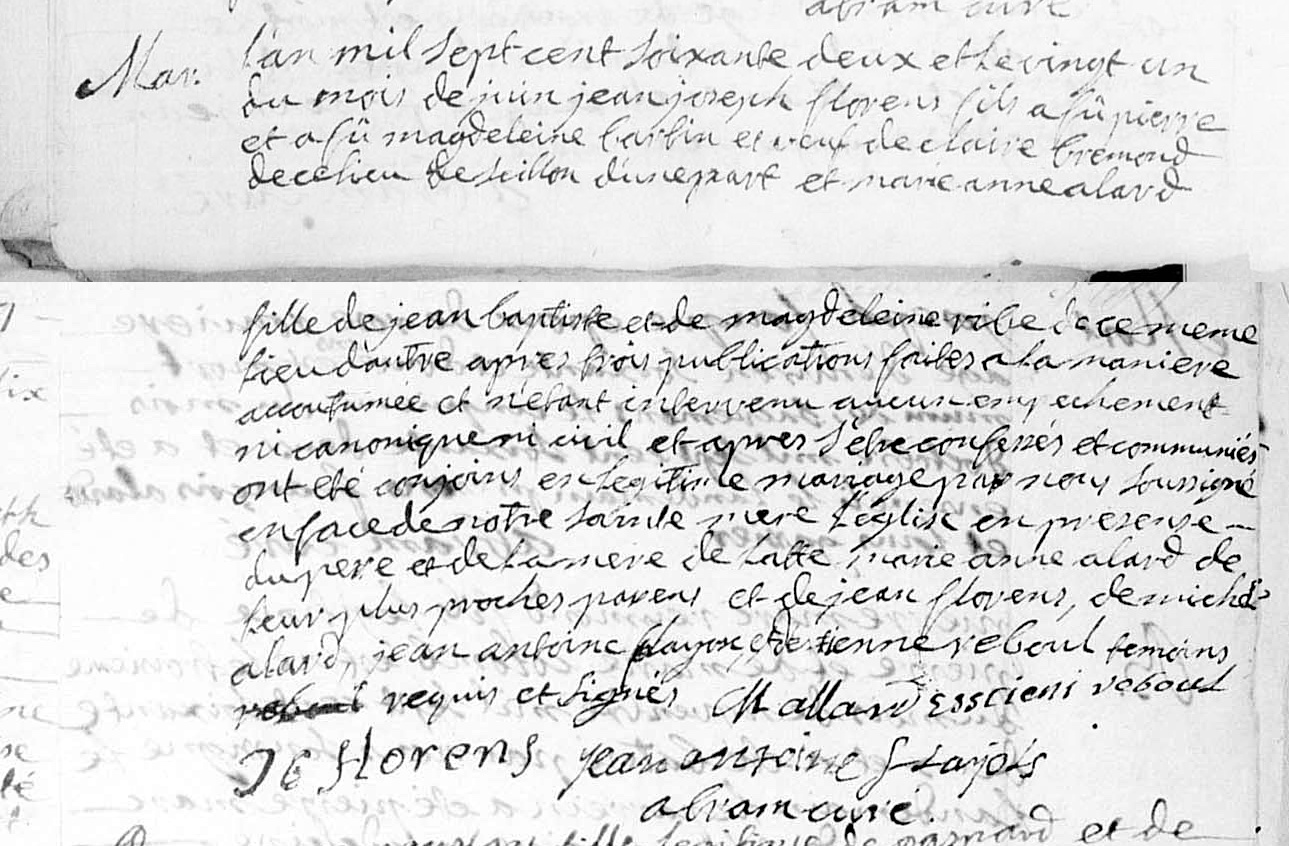 abram curé
Mar. l'an mil sept cent soixante deux et le vingt un
du mois de juin jean joseph florens fils a fû pierre
et a fû magdeleine barbin et veuf de claire bremond
de ce lieu de seillon d'une part et marie anne alard
fille de jean baptiste et de magdeleine ribe de ce meme
lieu d'autre apres trois publications faites a la maniere
accoutumée et n'etant intervenu aucun empechement
ni canonique ni civil et apres s'etre confessés et communiés
ont eté conjoins en legitime mariage par nous soussigné
en face de notre sainte mere l'église en presense
du pere et de la mere de latte marie anne alard de
leur plus proches parens et de jean florens, de michel
alard, jean antoine et d'etienne reboul temoins
requis et signés M allard esscieni reboul
J e florens jean antoine
abram curé.
fille legitime de et de